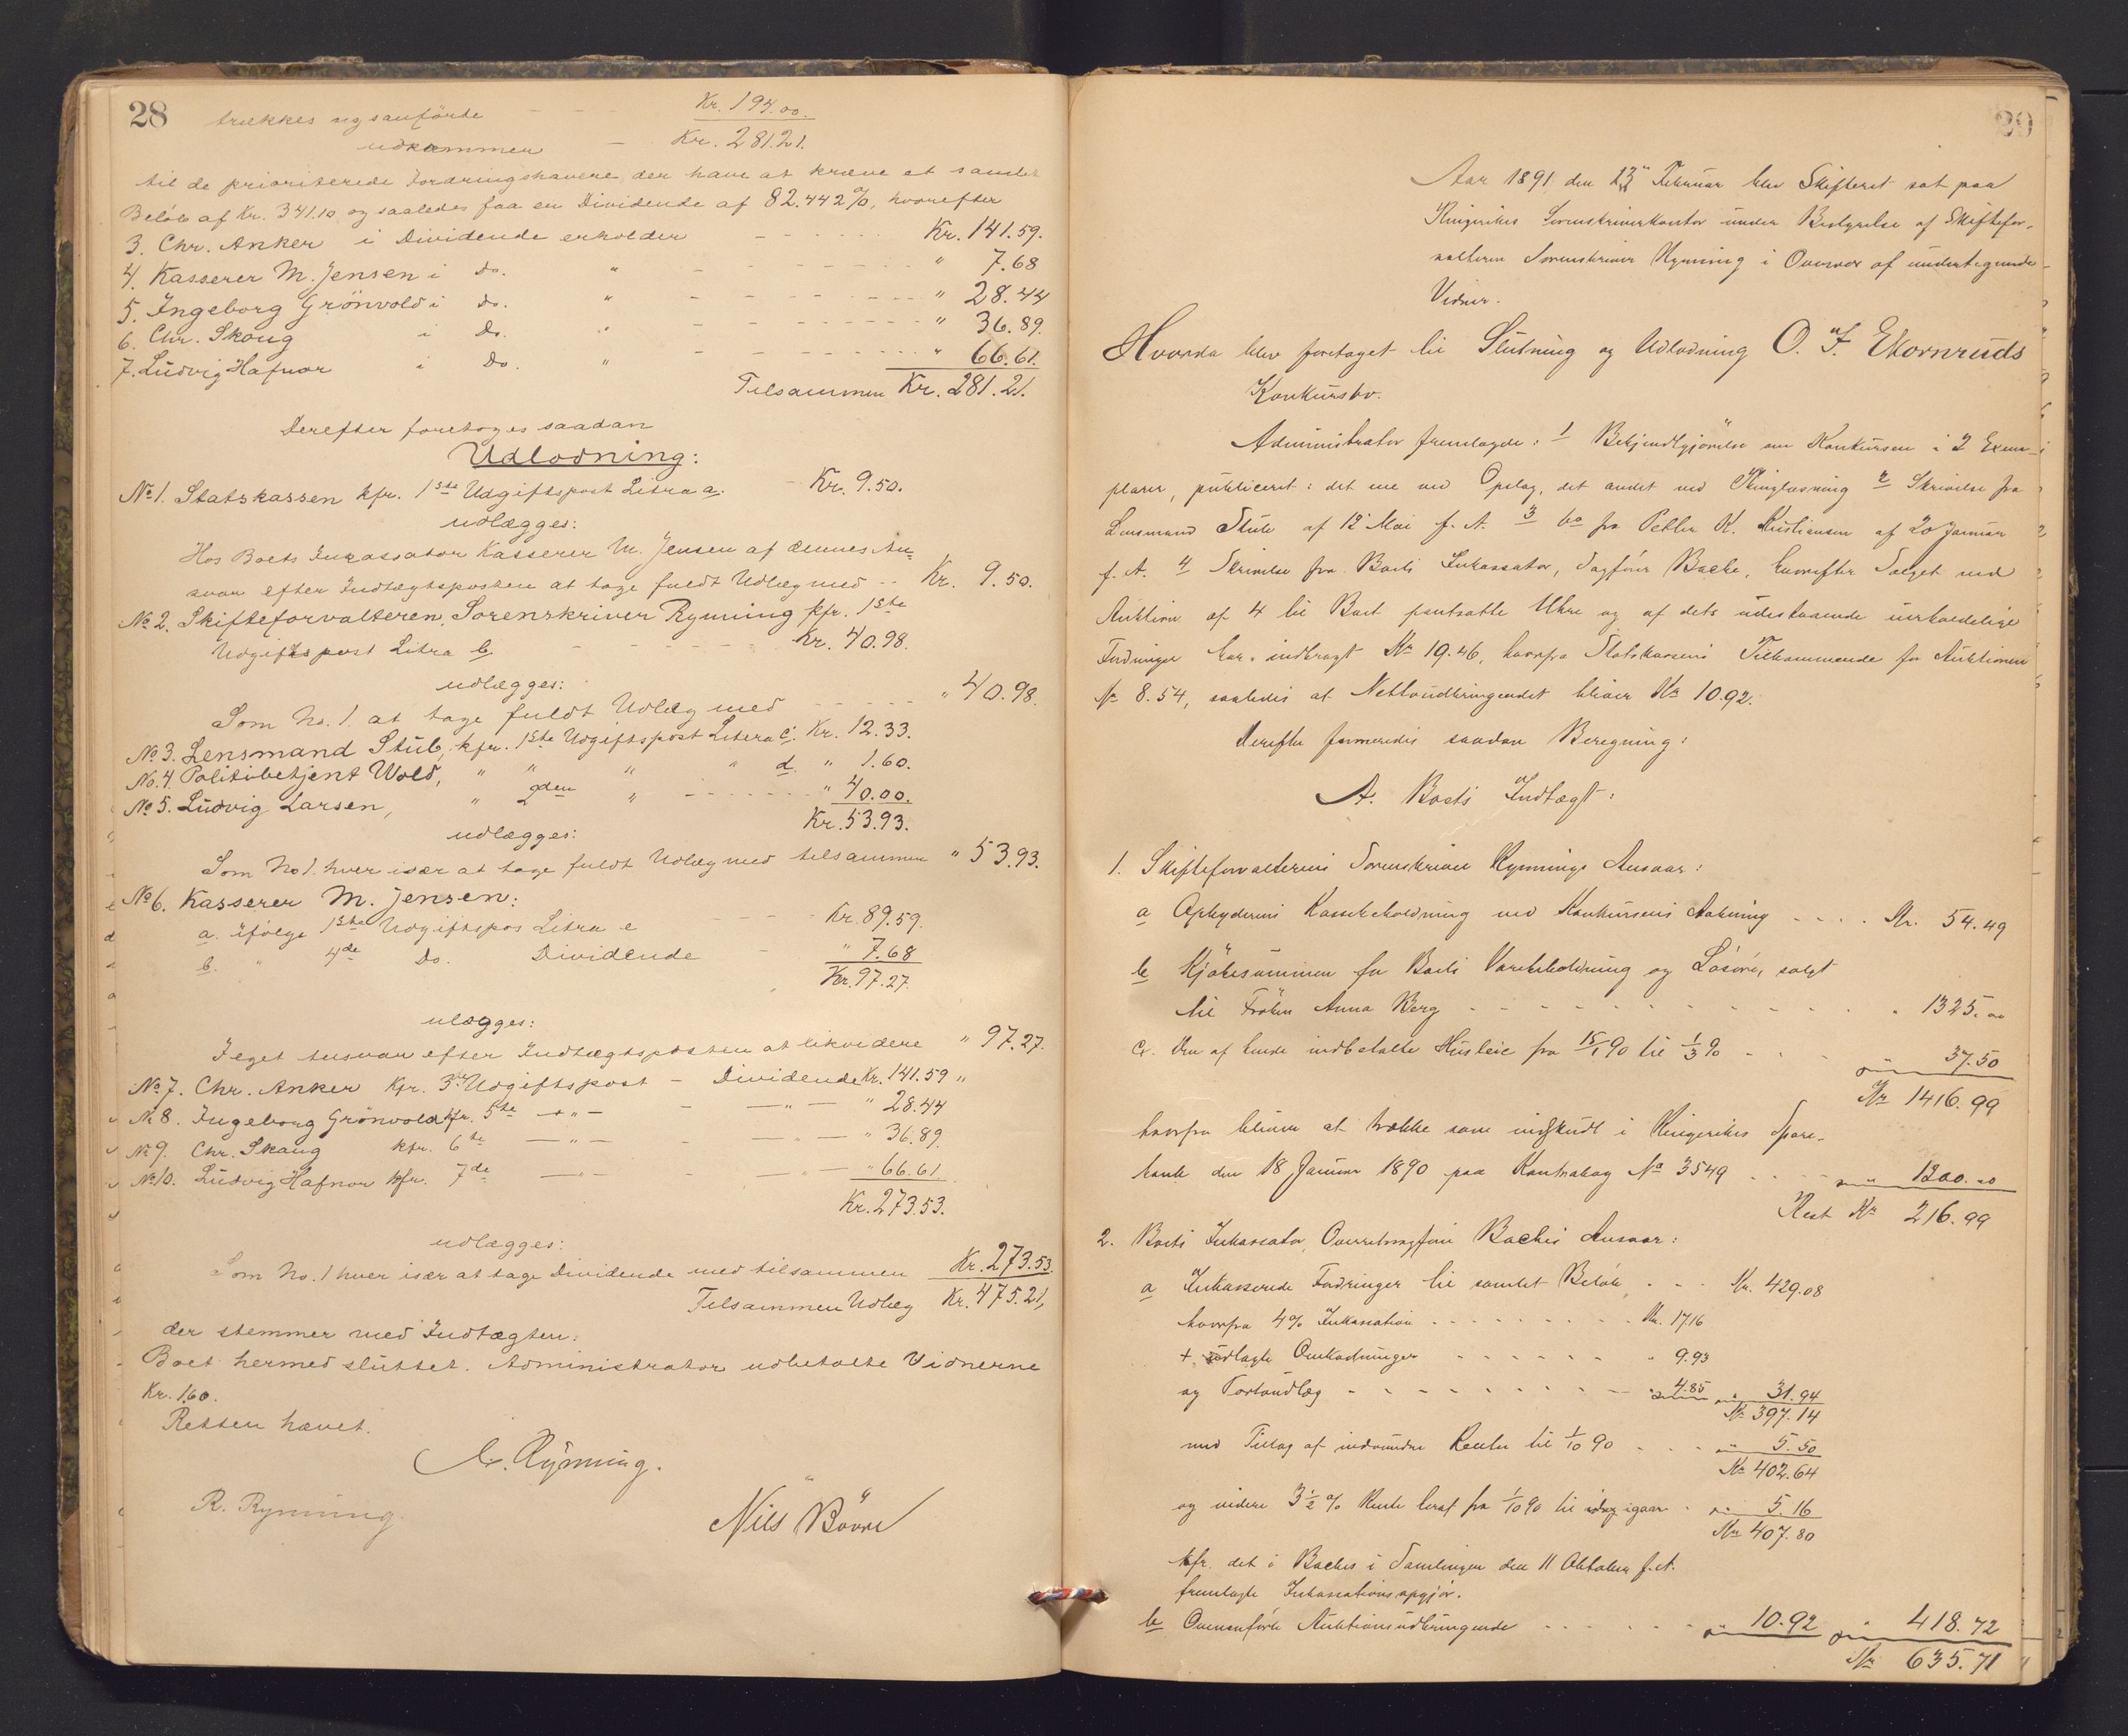 28
trækkes nysanførte - - Kr. 194.00.
udkommen - Kr. 281.21.
til de prioriterede Fordringshavere, der have at kræve et samlet
Beløb af Kr. 341.10 og saaledes faa en Dividende af 82.442%, hvorefter
3. Chr. Anker i Dividende erholder - - - - - Kr. 141.59.
4. Kasserer M. Jensen i do. " - - - - - " 7.68
5. Ingeborg Grönvold i do. " - - - - - " 28.44
6. Chr. Skoug i Do. " - - - - - " 36.89.
7. Ludvig Hafnor i Do. " - - - - - " 66.61.
Tilsammen Kr. 281.21.
Derefter foretoges saadan
Udlodning:
No 1. Statskassen kfr. 1ste Udgiftspost Litra a. - Kr. 9.50.
udlægges:
Hos Boets Inkassator Kasserer M. Jensen af dennes An-
svar efter Indtægtsposten at tage fuldt Udlæg med - - Kr. 9.50.
No 2. Skifteforvalteren, Sorenskriver Rynning kfr. 1ste
Udgiftspost Litra b. - - - - - Kr. 40.98.
udlægges:
Som No. 1. at tage fuldt Udlæg med - - - - - " 40.98.
No 3. Lensmand Stub, kfr. 1ste Udgiftspost Litera c. Kr. 12.33.
No. 4. Politibetjent Wold, " " " " d. " 1.60.
No 5. Ludvig Larsen, " 2den " - - - - - " 40.00.
Kr. 53.93.
udlægges:
Som No 1. hver især at tage fuldt Udlæg med tilsammen " 53.93.
No 6. Kasserer M. Jensen:
a. ifølge 1ste Udgiftspos Litra e - - - - Kr. 89.59.
b. " 4de Do. Dividende - " 7.68
Kr. 97.27.
ulægges:
I eget Ansvar efter Indtægtsposten at likvidere " 97.27.
No 7. Chr. Anker Kfr. 3de Udgiftspost - Dividende Kr. 141.59 "
No 8. Ingeborg Grönvold kfr. 5te - " - - - " - " 28.44
No 9. Chr. Skaug kfr. 6te - " - - " - " 36.89.
No 10. Ludvig Hafnor kfr. 7de - " - - " - " 66.61.
Kr. 273.53.
udlægges:
Som No. 1 hver især at tage Dividende med tilsammen Kr. 273.53.
Tilsammen Udlæg Kr. 475.21,
der stemmer med Indtægten:
Boet hermed sluttet. Administrator udbetalte Vidnerne
Kr. 1.60.
Retten hævet.
C. Rynning.
R. Rynning. Nils Bövre
29
Aar 1891 den 13de Februar blev Skifteret sat paa
Ringerikes Sorenskriverkontor under Bestyrelse af Skiftefor-
valteren Sorenskriver Rynning i Overvær af undertegnede
Vidner.
Hvorda blev foretaget til Slutning og Udlodning O. J. Ekornruds
Konkursbo.
Administrator fremlagde: 1 Bekjendtgjørelse om Konkursen i 2 Exem-
plarer, publiceret: det ene ved Opslag, det andet ved Thinglæsning 2 Skrivelse fra
Lensmand Stub af 12 Mai f. A. 3 do fra Peder K. Kristiansen af 20 Januar
f. A. 4 Skrivelse fra Boets Inkassator, Sagfører Bache, hvorefter Salget ved
Auktion af 4 til Boet pantsatte Uhre og af dets udestaaende uerholdelige
Fordringer har indbragt Kr 19.46, hvorfra Statskassens Tilkommende for Auktionen
Kr 8.54, saaledes at Nettoudbringendet bliver Kr 10.92.
Derefter formeredes saadan Beregning:
A. Boets Indtægt:
1. Skifteforvalterens Sorenskriver Rynnings Ansvar:
a Opbyderens Kassebeholdning ved Konkursens Aabning - - - - Kr. 54.49
b Kjøbesummen for Boets Varebeholdning og Løsøre, solgt
til Frøken Anna Berg - - - - - - " 1325.00
c. Den af hende indbetalte Husleie fra 15/1 90 til 1/3 90 - - - " 37.50
Kr 1416.99
hvorfra bliver at trække som indskudt i Ringerikes Spare-
bank den 18 Januar 1890 paa Kontrabog No 3549 - - - " 1200.00
Rest Kr 216.99
2. Boets Inkassator, Overretssagfører Baches Ansvar:
a Inkasserede Fordringer til samlet Beløb - - - Kr. 429.08
hvorfra 4% Inkassation - - - - - - Kr. 17.16
+ udlagte Omkostninger - - - - - " 9.93
og Portoudlæg - - - - - - " 4.85 " 31.94
Kr 397.14
med Tillæg af indvundne Renter til 1/10 90 - - - " 5.50
Kr 402.64
og videre 3 1/2 % Rente heraf fra 1/10 90 til idag igaar - " 5.16
Kr 407.80
kfr. det i Baches i Samlingen den 11 Oktober f. A.
fremlagte Inkassationsopgjør.
b Ovenanførte Auktionsudbringende - - - - - " 10.92 " 418.72
Kr 635.71